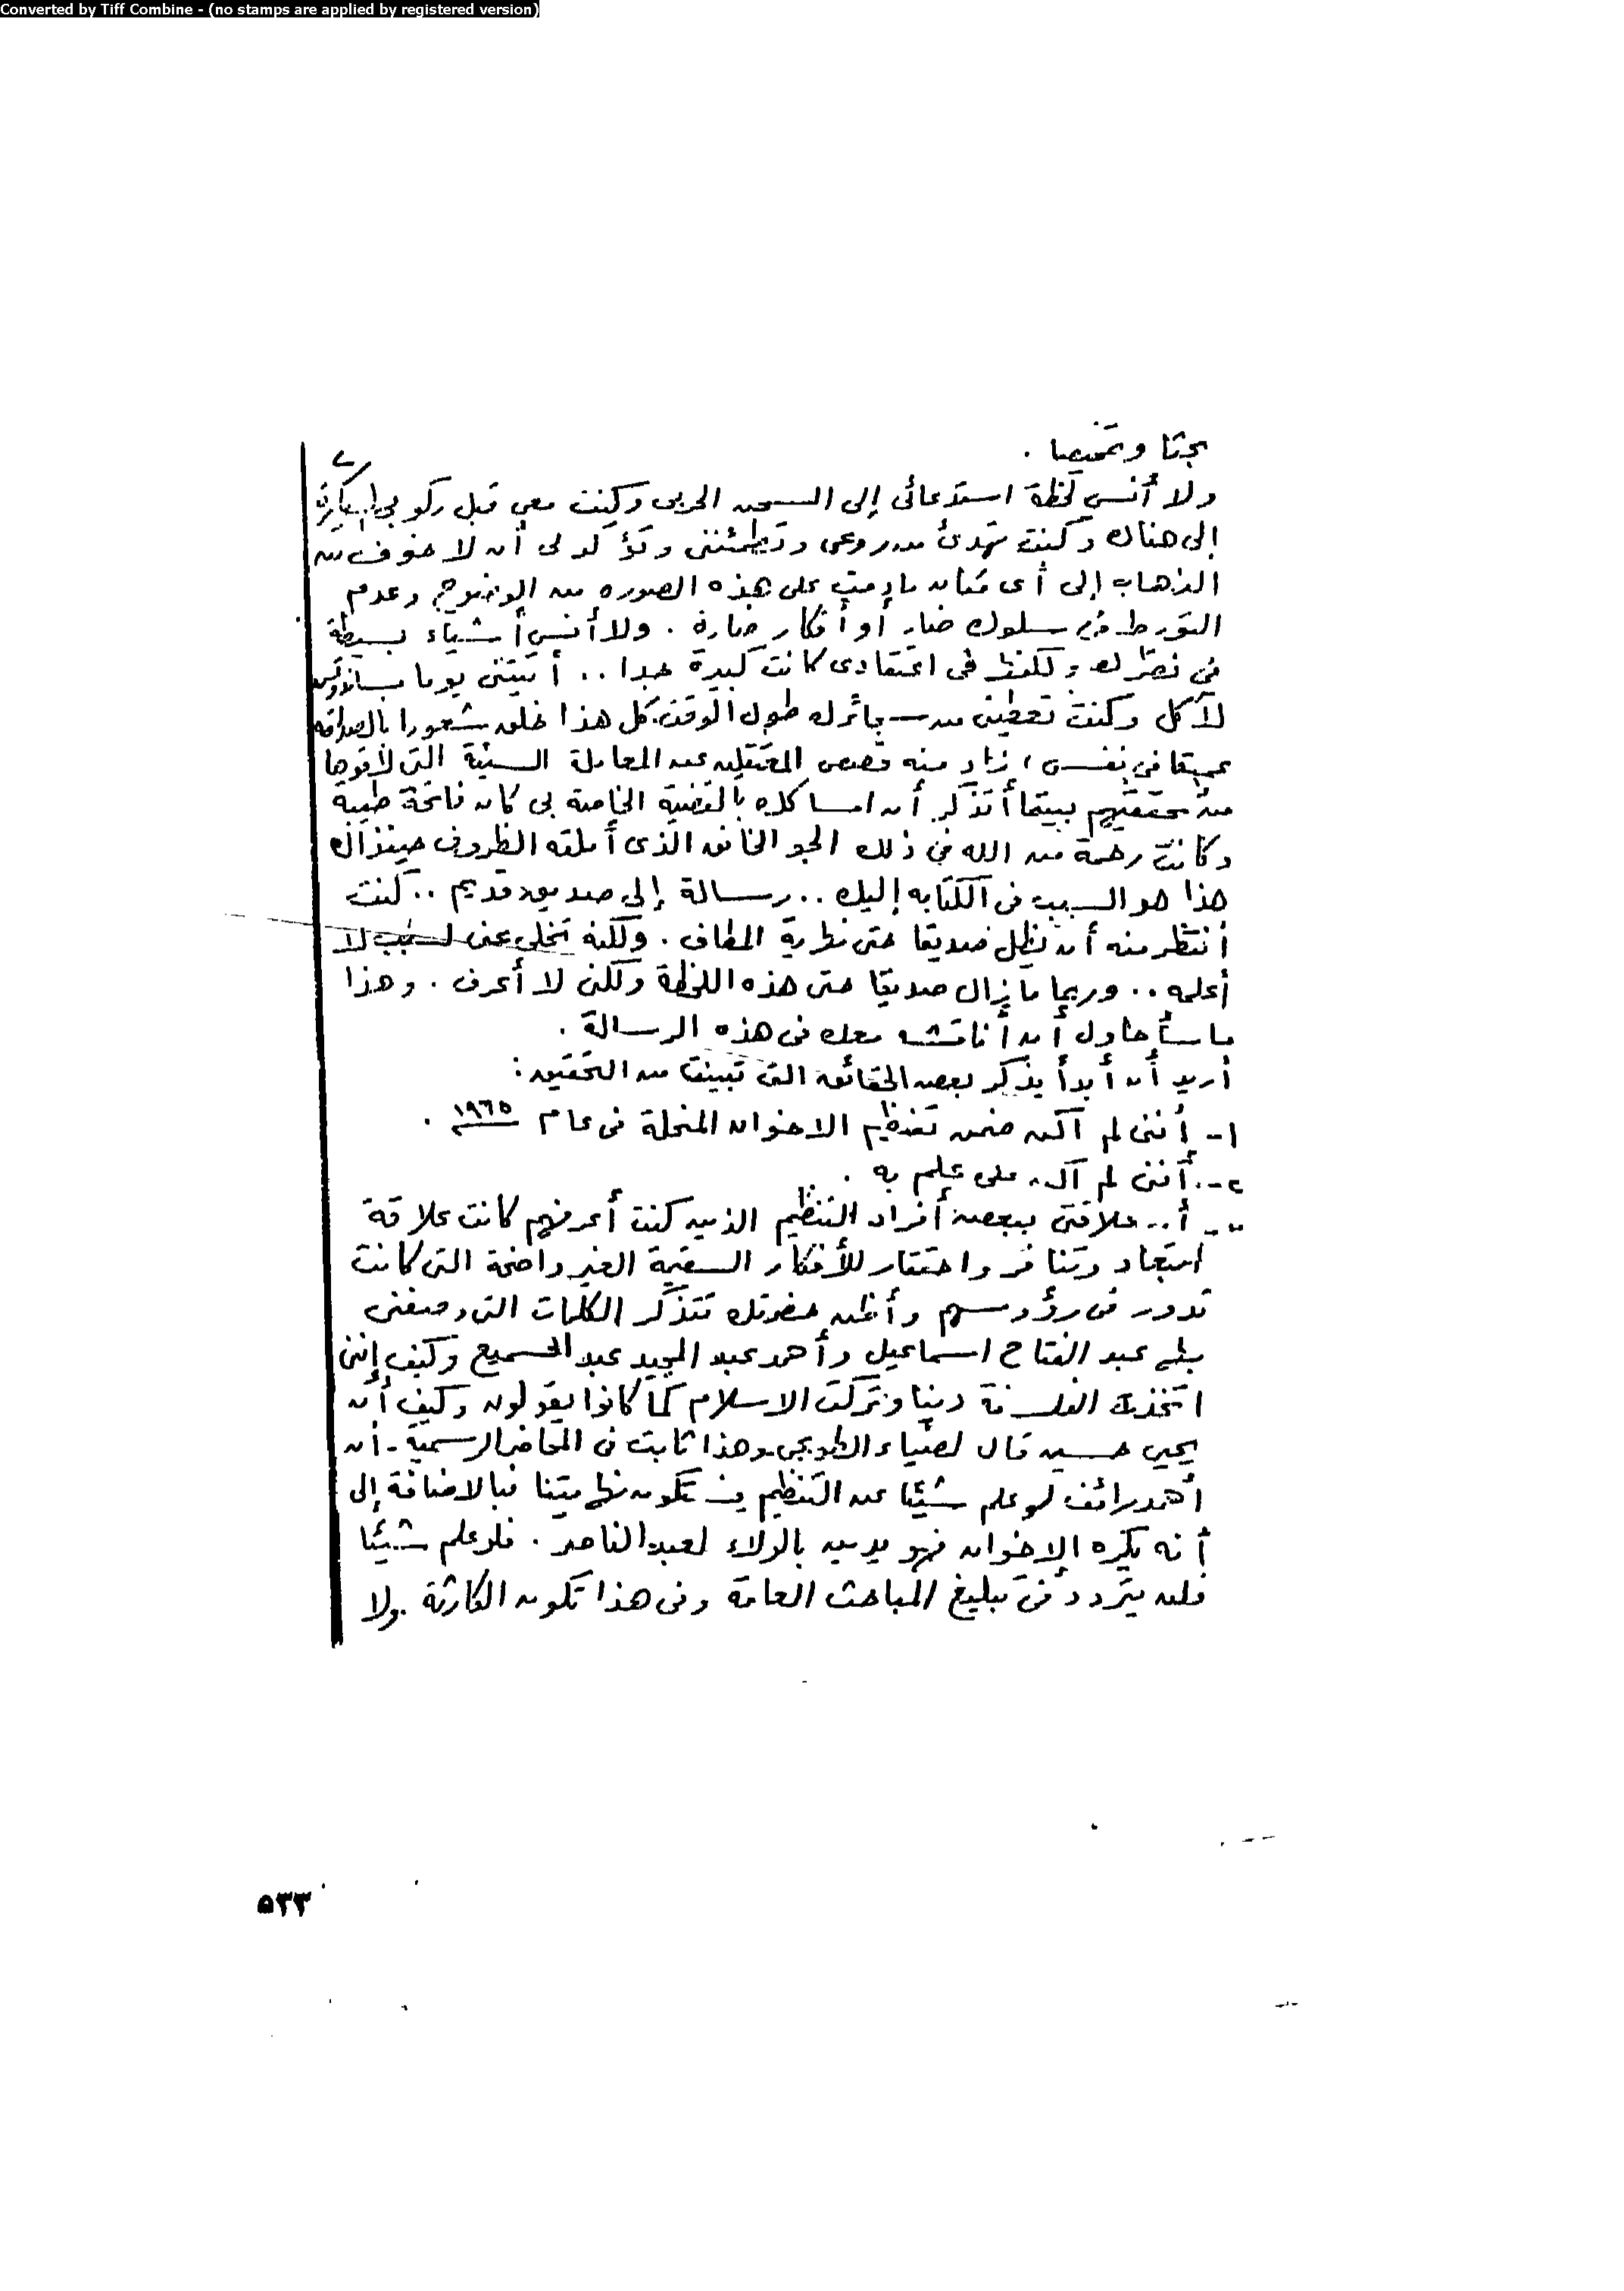 Converted by Tiff Combine - (no stamps are applied by registered version)
بحثا وتمحيصا .
٢
ولا أنسى لحظة استدعائى إلى السجن الحربى وكنت معى قبل ركوبى
إلى هناك وكنت تهدئ من روعى وتطمئننى وتؤكد لى أن لا خوف من
الذهاب إلى أى مكان مادمت على هذه الصوره من الوضوح وعدم
التورط فى سلوك ضار أو أفكار ضارة . ولا أنسى أشياء بسيطة
فى نظرك ولكنها فى اعتقادى كانت كبيرة جدا .. أتيتنى يوما بساندوتش
لآكل وكنت تعطينى من سجائرك طول الوقت. كل هذا خلق شعورا بالصداقه
عميقا فى نفسى ، زاد منه قصص المعتقلين عن المعاملة السيئة التى لاقوها
من محققيهم بينما أتذكر أن امساكك بالقضية الخاصة بى كان فاتحة طيبة
وكانت رحمة من الله فى ذلك الجو الخانق الذى أملته الظروف حينذاك
هذا هو السبب فى الكتابه إليك .. رسالة إلى صديق قديم .. كنت
أنتظر منه أن يظل صديقا حتى نهاية المطاف . ولكنه تخلى عنى لسبب لا
أعلمه .. وربما مازال صديقا حتى هذه اللحظة ولكن لا أعرف . وهذا
ما سأحاول أن أناقشه معك فى هذه الرسالة .
أريد أن أبدأ بذكر بعض الحقائق التى تبينت من التحقيق :
١- أننى لم أكن ضمن تنظيم الاخوان المنحلة فى عام ١٩٦٥ .
٢- أننى لم أكن على علم به .
٣- أن علاقتى ببعض أفراد التنظيم الذين كنت أعرفهم كانت علاقة
ابتعاد وتنافر واحتقار للأفكار السقيمة الغير واضحة التى كانت
تدور فى رؤوسهم وأظن حضرتك تتذكر الكلمات التى وصفنى
بها عبد الفتاح اسماعيل وأحمد عبد المجيد عبد السميع وكيف إننى
اتخذت الفلسفة دينا وتركت الاسلام كما كانوا يقولون وكيف أن
يحيى حسين قال لضياء الطوبجى - وهذا ثابت فى المحاضر الرسمية - أن
أحمد رائف لو علم شيئا عن التنظيم فستكون نهايتنا فبالاضافة إلى
أنه يكره الإخوان فهو يدين بالولاء لعبد الناصر . فلو علم شيئا
فلن يتردد فى تبليغ المباحث العامة وفى هذا تكون الكارثة . ولا
٥٣٣